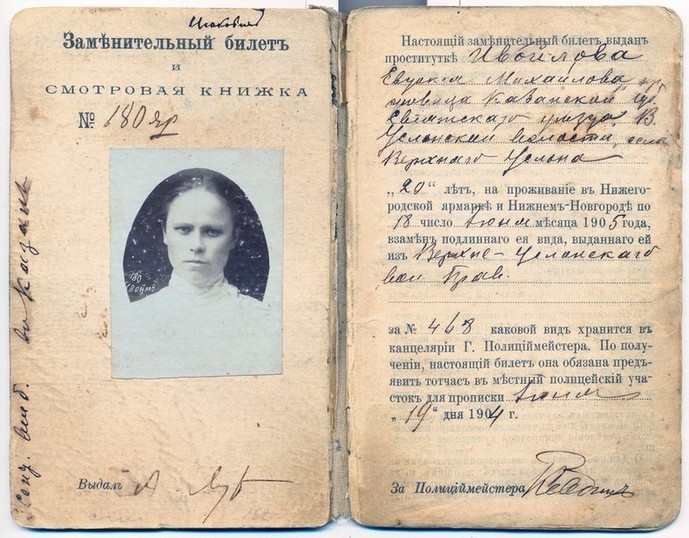 Замѣнительный билетъ
и
СМОТРОВАЯ КНИЖКА
№ 180 яр
180
Выдалъ
Настоящій замѣнительный билетъ выданъ
проституткѣ Ивойлова
Евдокія Михайлова
Казанской
уѣзда, В.
Услонской волости, села
Верхняго Услона
„20“ лѣтъ, на проживаніе въ Нижего-
родской ярмаркѣ и Нижнемъ-Новгородѣ по
18 число Іюня мѣсяца 1905 года,
взамѣнъ подлиннаго ея вида, выданнаго ей
изъ Верхне-Услонскаго
вол. Прав.
за № 468 каковой видъ хранится въ
канцеляріи Г. Полиційместера. По полу-
ченіи, настоящій билетъ она обязана предъ-
явить тотчасъ въ мѣстный полицейскій уча-
стокъ для прописки Іюня
„19“ дня 1904 г.
За Полиційместера